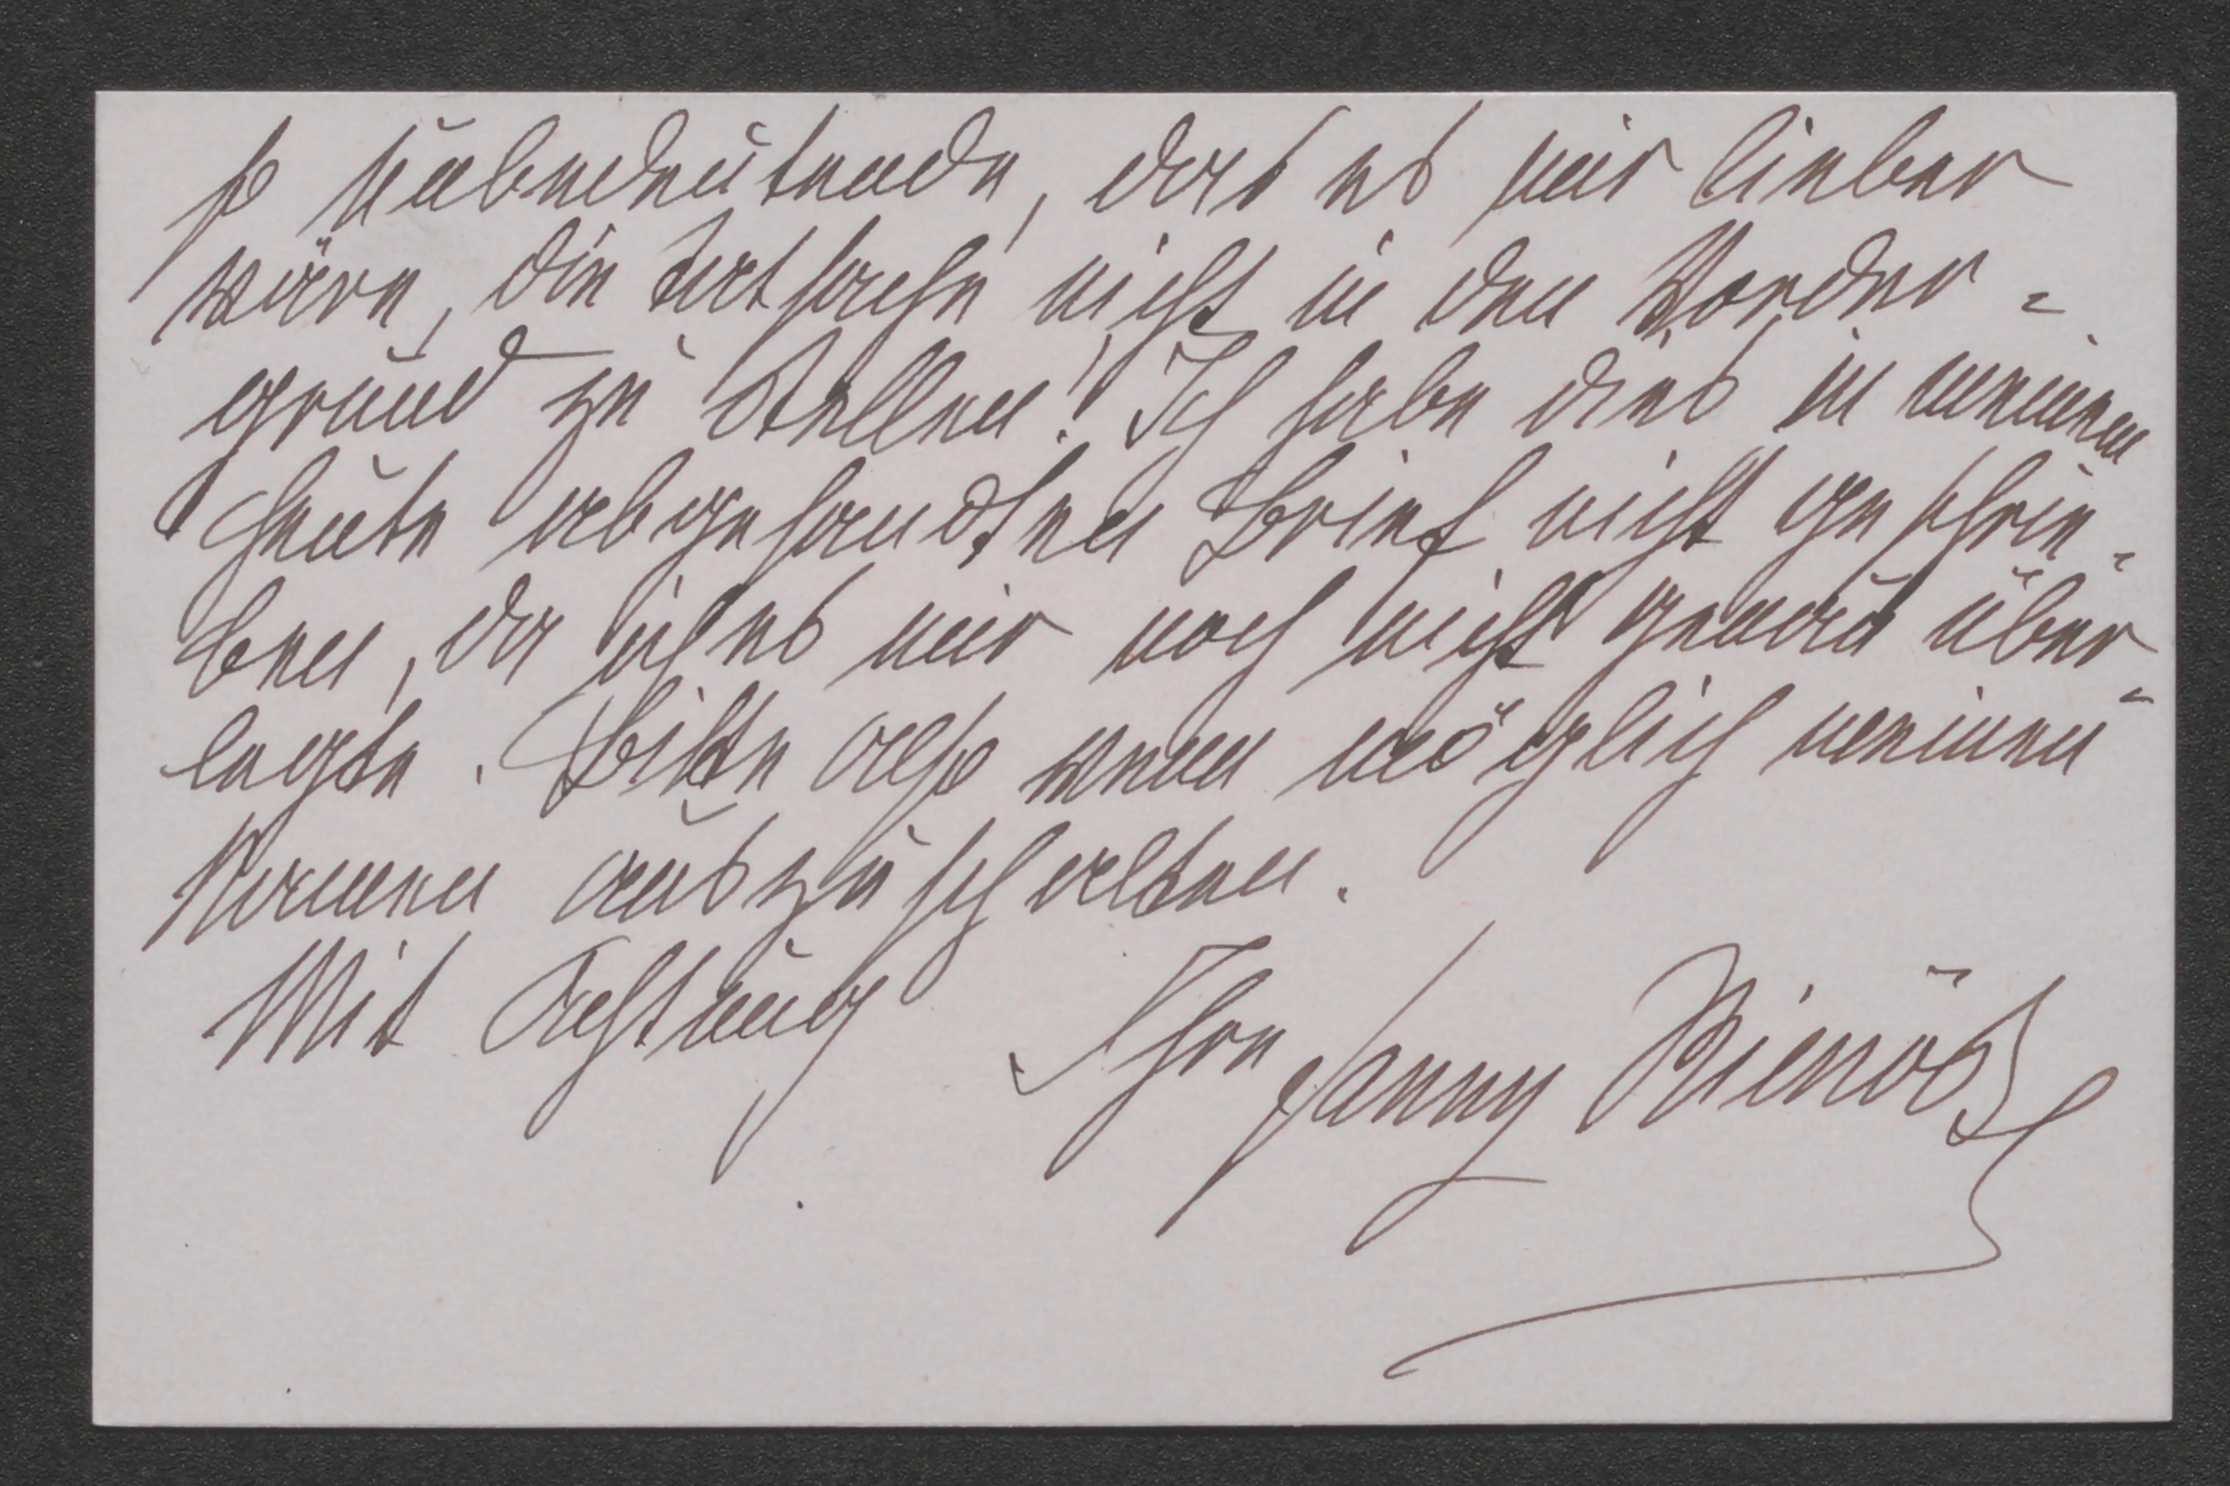 so unbedeutende, dass es mir lieber
wäre, die Tatsache nicht in den Vorder=
grund zu stellen! Ich habe dies in meinem
heute abgesandten Brief nicht geschrie=
ben, da ich es mir noch nicht genau über=
legte. Bitte also wenn möglich meinen
Namen auszuschalten.
Mit Achtung Ihre Fanny